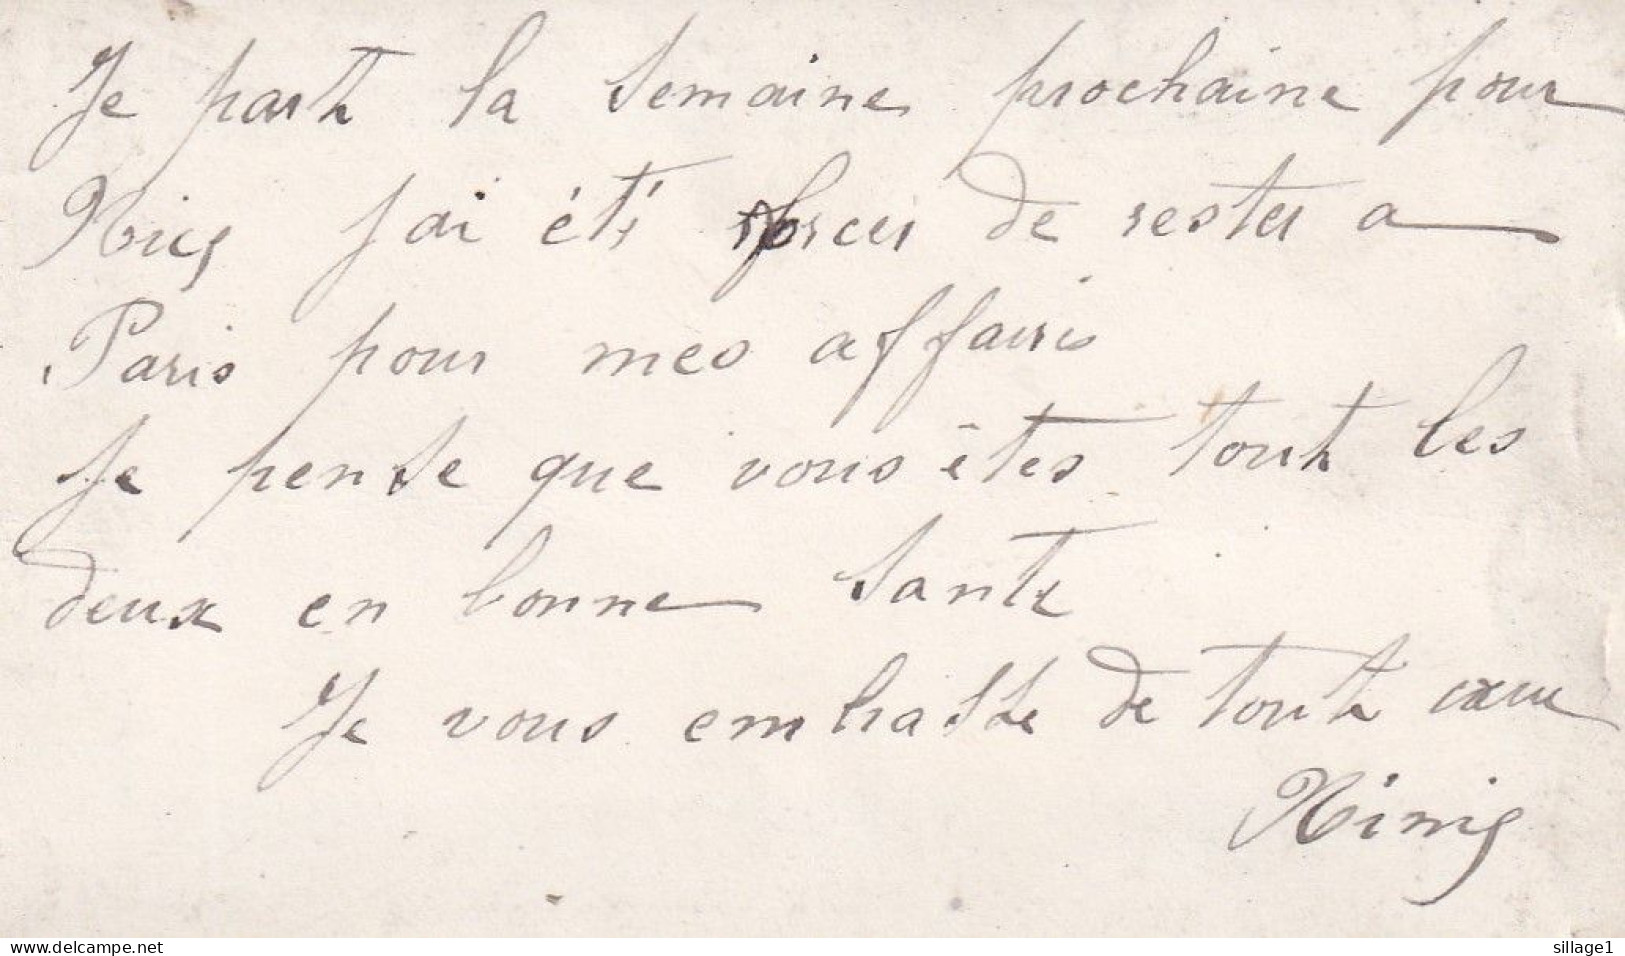 Je part la semaine prochaine pour
Nice j'ai été forcer de rester a
Paris pour mes affairis
Je pense que vous êtes tout les
deux en bonne sante
Je vous embrasse de tout cœur
Ninie
www.delcampe.net
sillage1